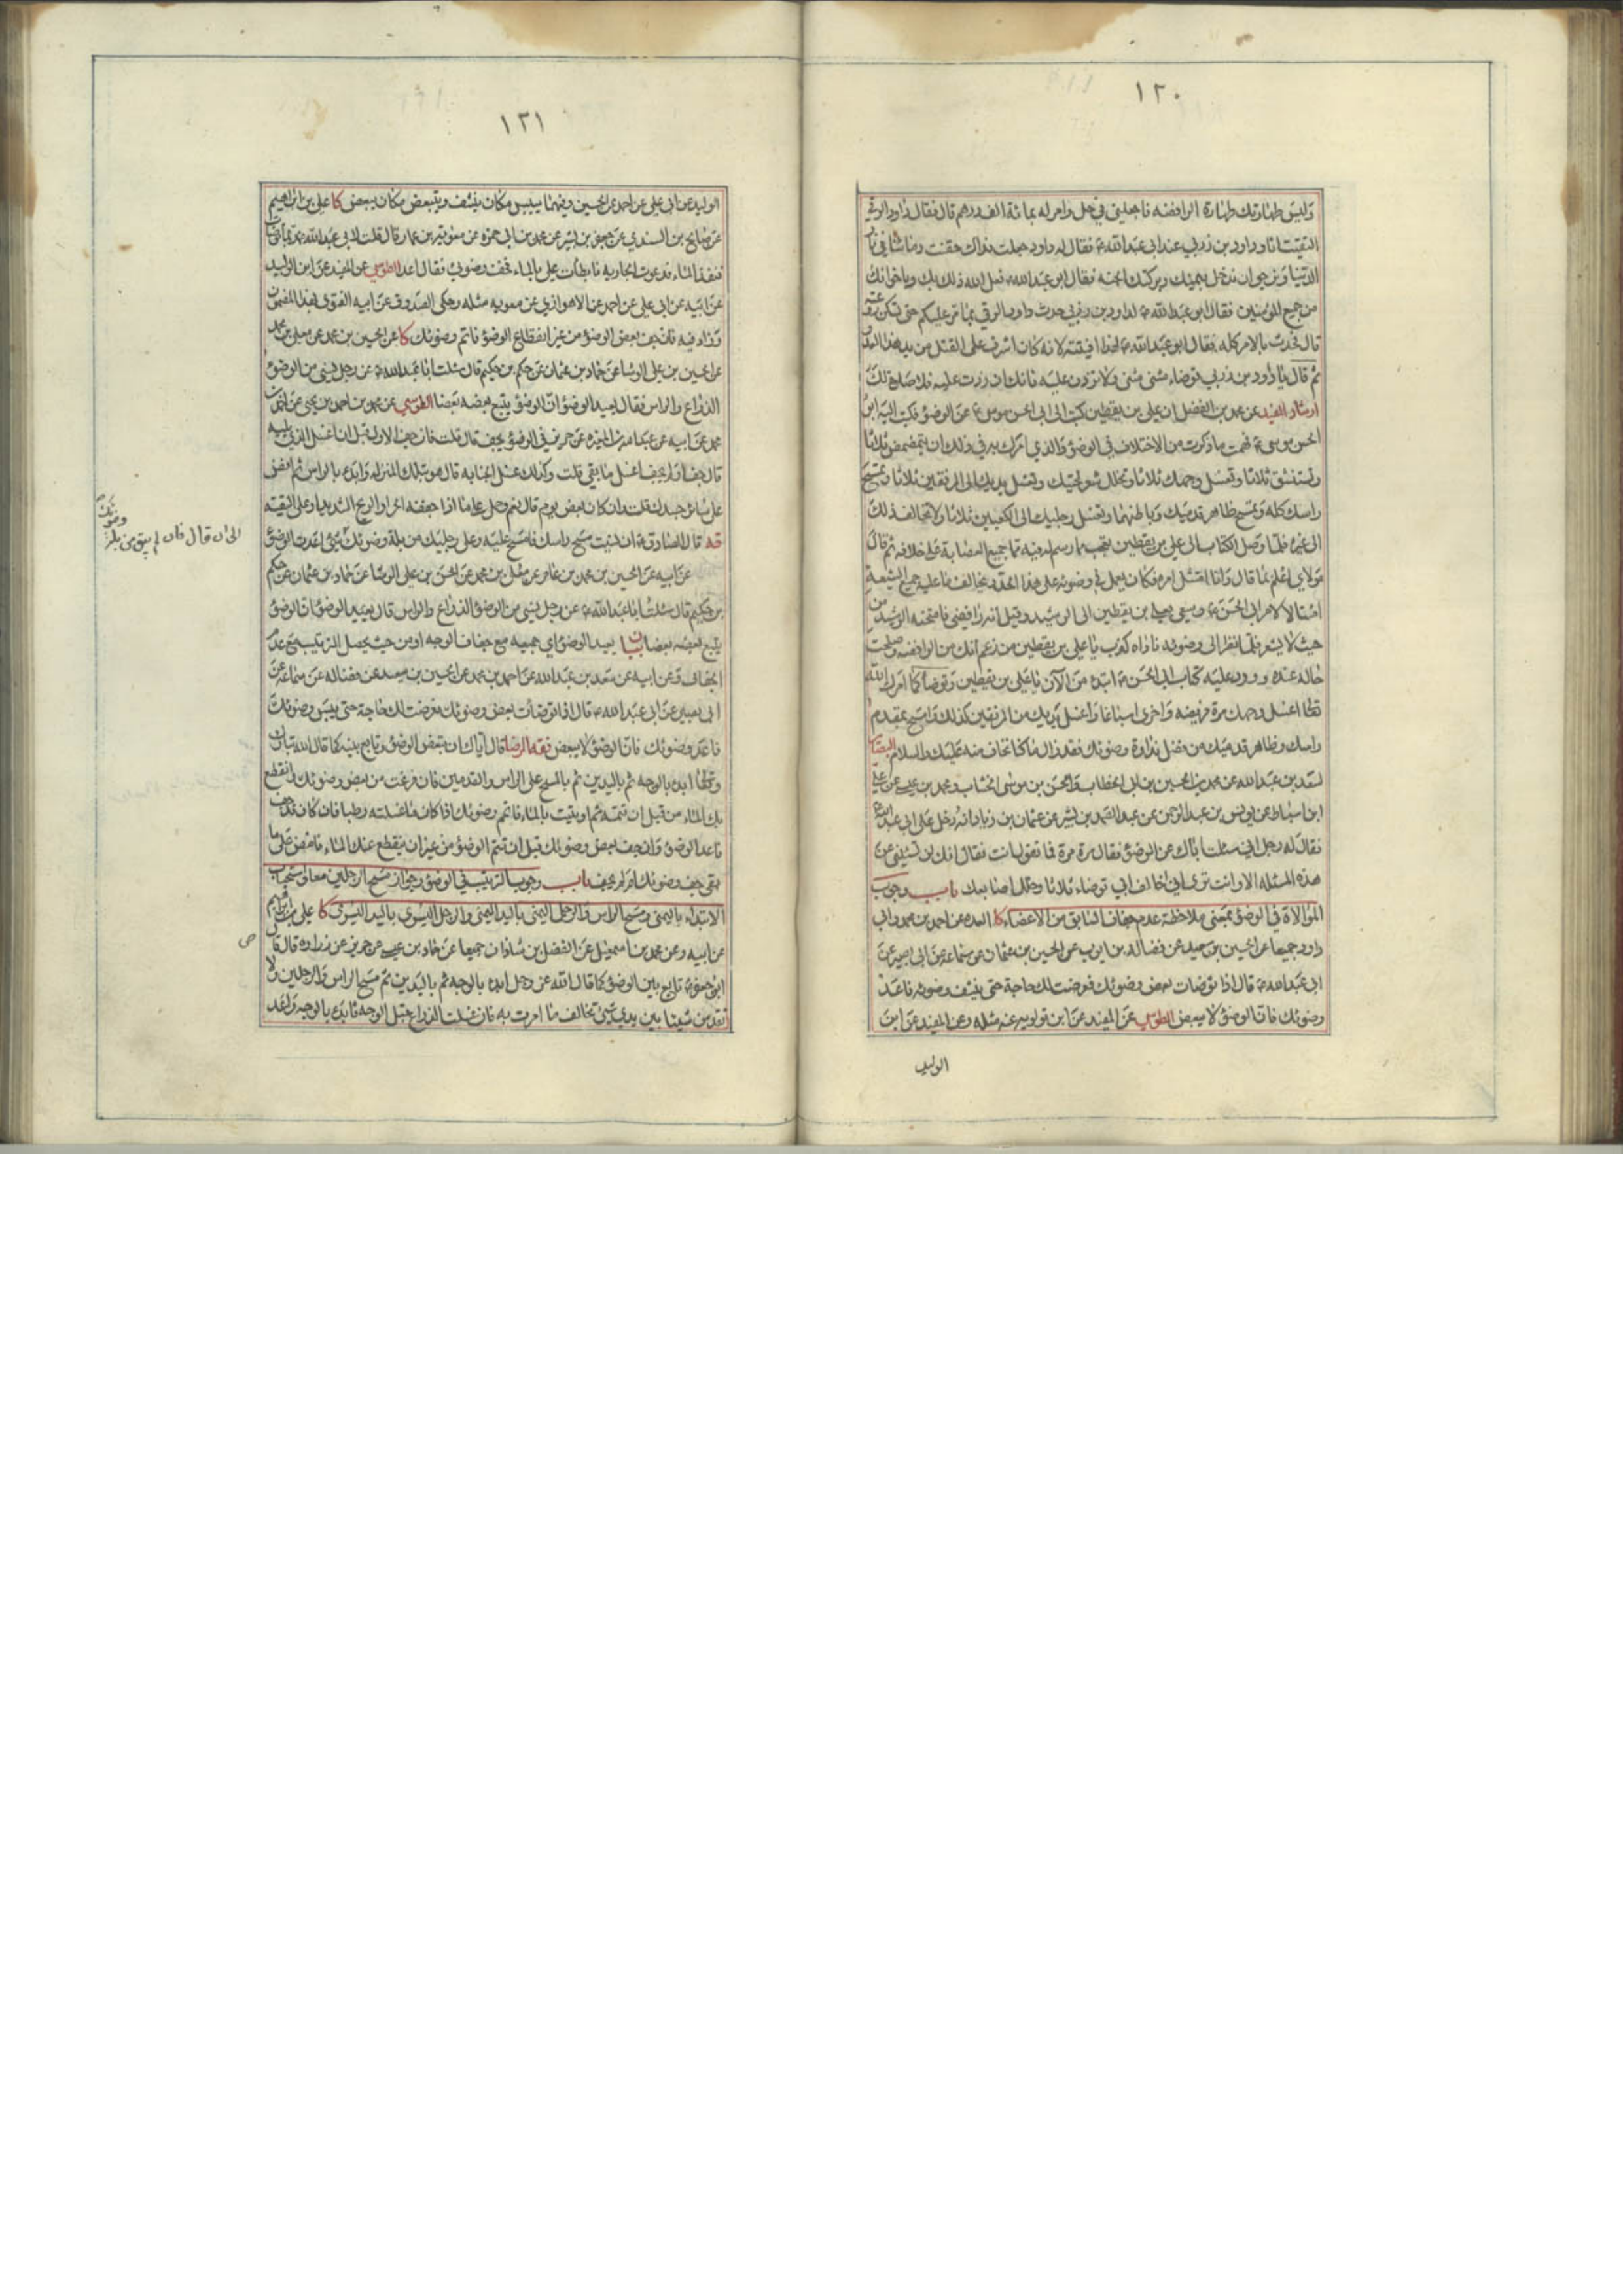 ١٢٠
وليس طهارتك طهارة الرافضه فاجعلني في حل وامر له بمائة الف درهم قال فقال داود الرقي
التقيت انا وداود بن زربي عند ابي عبد الله ع فقال له داود جعلت فداك حقنت دماءنا في دار
الدنيا ونرجو ان ندخل بيمنك وبركتك الجنه فقال ابو عبد الله ع فعل الله ذلك بك وباخوانك
من جميع المؤمنين فقال ابو عبد الله ع لداود بن زربي حدث داود الرقي بما مر عليكم حتى تسكن روعته
قال فحدثت بالامر كله فقال ابو عبد الله ع لهذا افتيته لانه كان اشرف على القتل من يد هذا العدو
ثم قال يا داود بن زربي توضاء مثنى مثنى ولا تزدن عليه فانك ان زدت عليه فلا صلوة لك
ارشاد المفيد عن محمد بن الفضيل ان علي بن يقطين كتب الى ابي الحسن موسى ع عن الوضوء فكتب اليه ابو
الحسن موسى ع فهمت ما ذكرت من الاختلاف في الوضوء والذي امرك به في ذلك ان تتمضمض ثلاثا
وتستنشق ثلاثا وتغسل وجهك ثلاثا وتخلل شعر لحيتك وتغسل يديك الى المرفقين ثلاثا وتمسح
راسك كله وتمسح ظاهر اذنيك وباطنهما وتغسل رجليك الى الكعبين ثلاثا ولا تخالف ذلك
الى غيره فلما وصل الكتاب الى علي بن يقطين تعجب مما رسم له فيه مما جميع العصابة على خلافه ثم قال
مولاي اعلم بما قال وانا امتثل امره فكان يعمل في وضوئه على هذا الحد ويخالف ما عليه جميع الشيعة
امتثالا لامر ابي الحسن ع وسعى بعلي بن يقطين الى الرشيد وقيل انه رافضي فامتحنه الرشيد من
حيث لا يشعر فلما نظر الى وضوئه ناداه كذب يا علي بن يقطين من زعم انك من الرافضه وصلحت
حاله عنده وورد عليه كتاب ابي الحسن ع ابتدء من الآن يا علي بن يقطين وتوضأ كما امرك الله
تعالى اغسل وجهك مرة فريضه واخرى اسباغا واغسل يديك من المرفقين كذلك وامسح بمقدم
راسك وظاهر قدميك من فضل نداوة وضوئك فقد زال ما كنا نخاف منه عليك والسلام البصائر
لسعد بن عبد الله عن محمد بن الحسين بن ابي الخطاب والحسن بن موسى الخشاب ومحمد بن عيسى عن علي
ابن اسباط عن يونس بن عبد الرحمن عن عبد الصمد بن بشير عن عثمان بن زياد انه دخل على ابي عبد الله ع
فقال له رجل اني سئلت اباك عن الوضوء فقال مرة مرة فما تقول انت فقال انك لن تسئلني عن
هذه المسئله الا وانت ترى اني اخالف ابي توضاء ثلاثا وخلل اصابعك باب وجوب
الموالاة في الوضوء بمعنى ملاحظة عدم جفاف السابق من الاعضاء كا العده عن احمد بن محمد وابي
داود جميعا عن الحسين بن سعيد عن فضاله بن ايوب عن الحسين بن عثمان عن سماعه عن ابي بصير عن
ابي عبد الله ع قال اذا توضات بعض وضوئك فعرضت لك حاجة حتى ينشف وضوئه فاعد
وضوئك فان الوضوء لا يبعض الطوسي عن المفيد عن ابن قولويه عنه مثله وعن المفيد عن ابن
الوليد
١٢١
الوليد عن ابي علي عن احمد عن الحسين وفيهما ييبس مكان ينشف ويتبعض مكان يبعض كا علي بن ابراهيم
عن صالح بن السندي عن جعفر بن بشير عن محمد بن ابي حمزه عن معوية بن عمار قال قلت لابي عبد الله ع ربما توضات
فنفد الماء فدعوت الجاريه فابطأت علي بالماء فجف وضوئي فقال اعد الطوسي عن المفيد عن ابن الوليد
عن ابيه عن ابي علي عن احمد عن الاهوازي عن معويه مثله وحكى الصدوق عن ابيه الفتوى بهذا المضمون
وزاد فيه فان جف بعض الوضوء من غير انقطاع الوضوء فاتم وضوئك كا عن الحسين بن محمد عن معلى بن محمد
عن الحسين بن علي الوشا عن حماد بن عثمان عن حكم بن حكيم قال سئلت ابا عبد الله ع عن رجل نسي من الوضوء
الذراع والراس فقال يعيد الوضوء ان الوضوء يتبع بعضه بعضا الطوسي عن محمد بن احمد بن يحيى عن احمد بن
محمد عن ابيه عن عبد الله بن المغيره عن حريز في الوضوء يجف قال قلت فان جف الاول قبل ان اغسل الذي يليه
قال جف او لم يجف اغسل ما بقي قلت وكذلك غسل الجنابه قال هو بتلك المنزله وابدء بالراس ثم افض
على سائر جسدك قلت وان كان بعض يوم قال نعم وحمل على ما اذا جففه الحر او الريح الشديد او على التقيه
فه قال الصادق ع ان نسيت مسح راسك فامسح عليه وعلى رجليك من بلة وضوئك شئ اعدت الوضوء
عن ابيه عن الحسين بن محمد بن عامر عن معلى بن محمد عن الحسن بن علي الوشا عن حماد بن عثمان عن حكم
بن حكيم قال سئلت ابا عبد الله ع عن رجل نسي من الوضوء الذراع والراس قال يعيد الوضوء ان الوضوء
يتبع بعضه بعضا بيان يعيد الوضوء اي جميعه مع جفاف الوجه او من حيث يحصل الترتيب مع عدم
الجفاف وعن ابيه عن سعد بن عبد الله عن احمد بن محمد عن الحسين بن سعيد عن فضاله عن سماعه عن
ابي بصير عن ابي عبد الله ع قال اذا توضأت بعض وضوئك فعرضت لك حاجة حتى ييبس وضوئك
فاعد وضوئك فان الوضوء لا يبعض فقه الرضا قال اياك ان تبعض الوضوء وتابع بينه كما قال الله تبارك
وتعالى ابدء بالوجه ثم باليدين ثم بالمسح على الراس والقدمين فان فرغت من بعض وضوئك وانقطع
بك الماء من قبل ان تتمه ثم اوتيت بالماء فاتم وضوئك اذا كان ما غسلته رطبا فان كان قد جف
فاعد الوضوء وان جف بعض وضوئك قبل ان تتم الوضوء من غير ان ينقطع عنك الماء فامض على ما
بقى جف وضوئك ام لم يجف باب وجوب الترتيب في الوضوء وجواز مسح الرجلين معا واستحباب
الابتداء باليمنى ومسح الراس والرجل اليمنى باليد اليمنى والرجل اليسرى باليد اليسرى كا علي بن ابراهيم
عن ابيه وعن محمد بن اسمعيل عن الفضل بن شاذان جميعا عن حماد بن عيسى عن حريز عن زراده قال قال
ابو جعفر ع تابع بين الوضوء كما قال الله عز وجل ابدء بالوجه ثم باليدين ثم مسح الراس والرجلين ولا
تقدمن شيئا بين يدي شئ تخالف ما امرت به فان غسلت الذراع قبل الوجه فابدء بالوجه واعد
الى ان قال فان لم يبق من بلة
وضوئك
ص